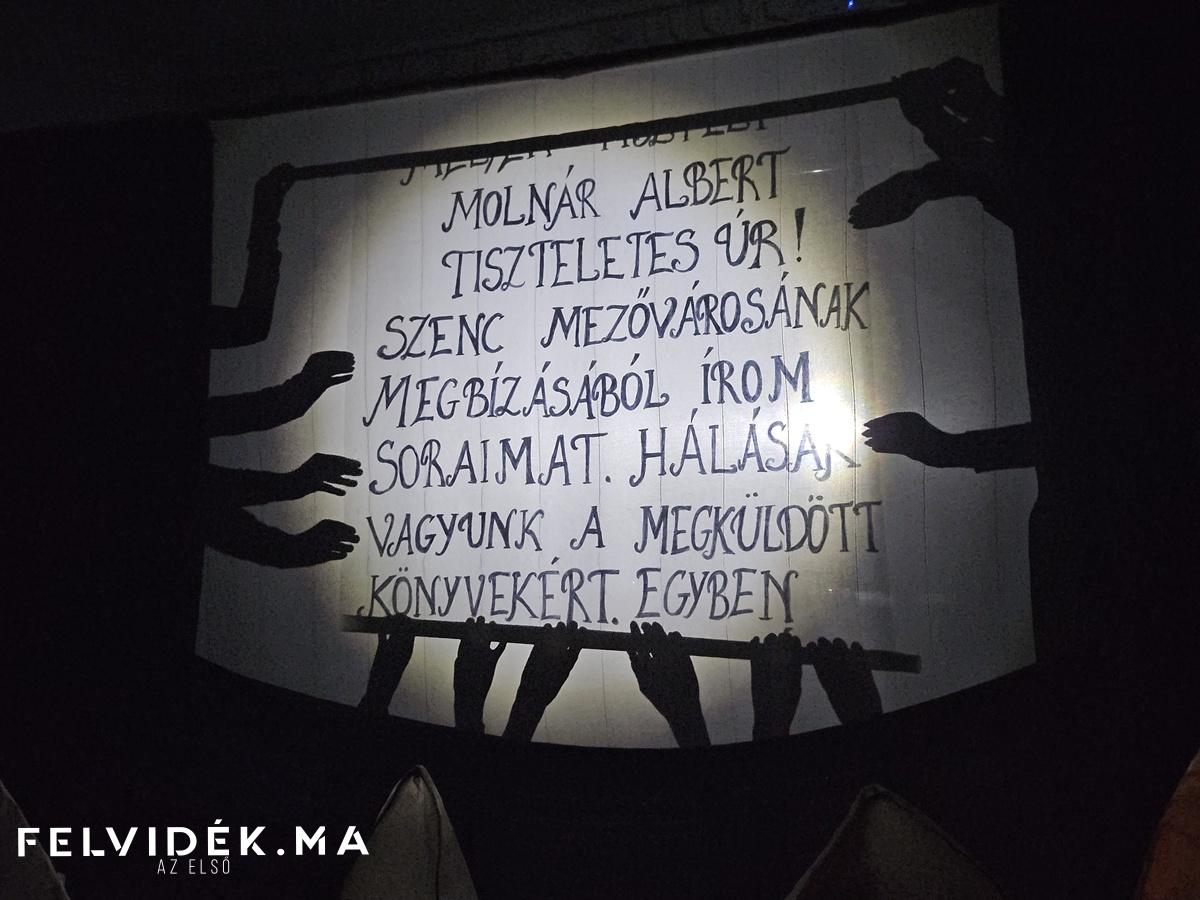 MOLNÁR ALBERT
TISZTELETES ÚR!
SZENC MEZŐVÁROSÁNAK
MEGBÍZÁSÁBÓL ÍROM
SORAIMAT. HÁLÁSAK
VAGYUNK A MEGKÜLDÖTT
KÖNYVEKÉRT. EGYBEN
FELVIDÉK.MA
AZ ELSŐ